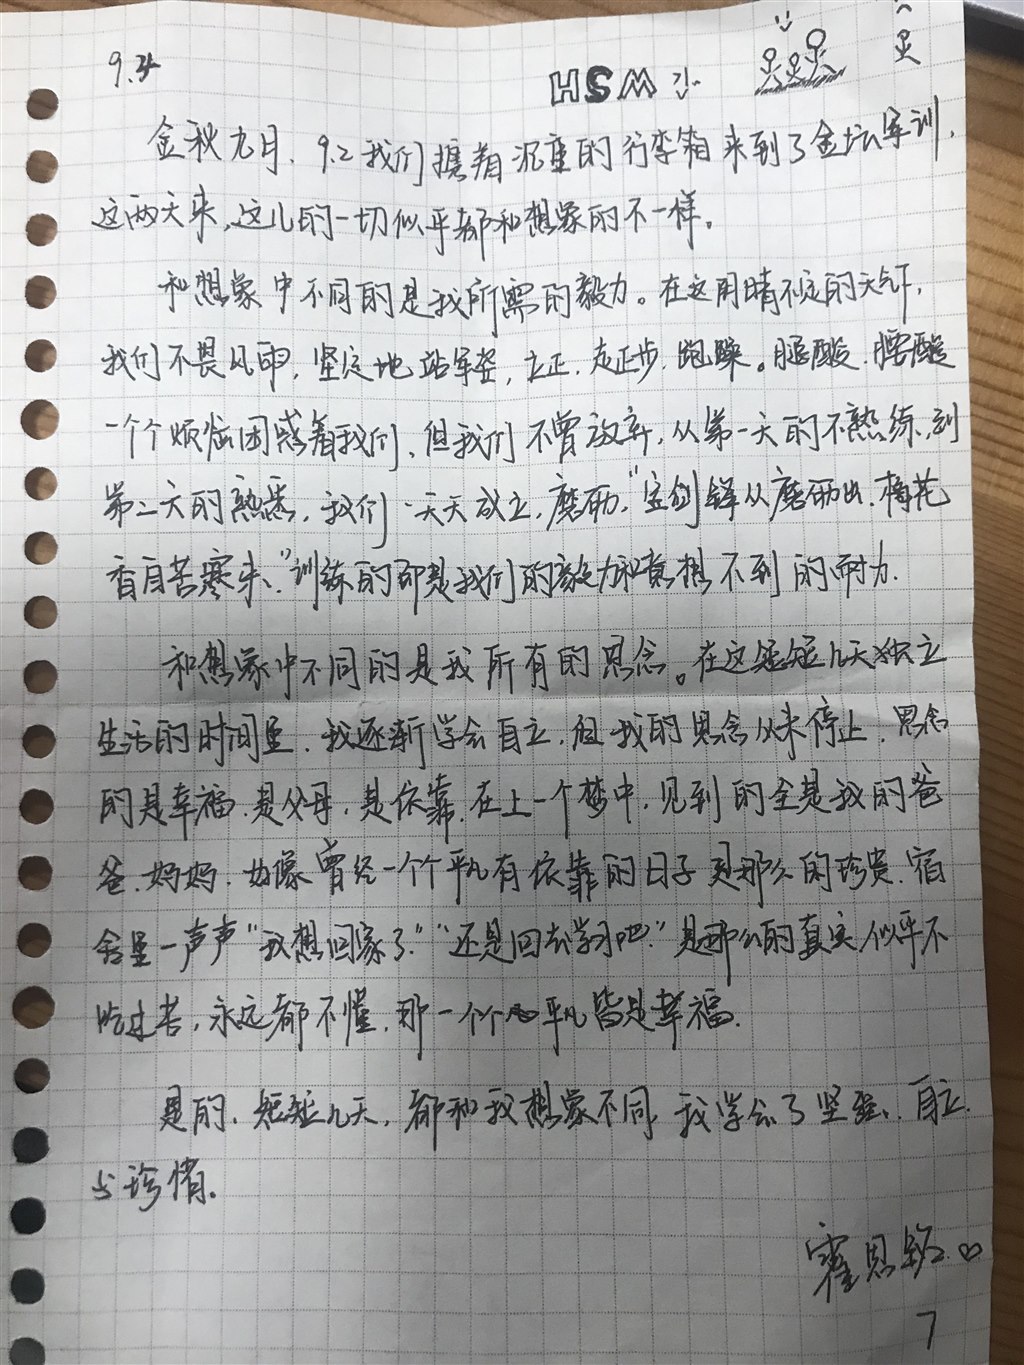 9.4
HSM
金秋九月、9.2我们携着沉重的行李箱来到了金坛军训，
这两天来，这儿的一切似乎都和想象的不一样。
和想象中不同的是我所需的毅力。在这阴晴不定的天气下，
我们不畏风雨，坚定地站军姿，立正，走正步，跑操。腿酸、腰酸
一个个烦恼困惑着我们，但我们不曾放弃，从第一天的不熟练，到
第二天的熟悉，我们一天天成立，磨砺，“宝剑锋从磨砺出，梅花
香自苦寒来、”训练的都是我们的毅力和意想不到的耐力.
和想象中不同的是我所有的思念。在这短短几天独立
生活的时间里，我逐渐学会自立，但我的思念从未停止，思念
的是幸福，是父母，是依靠，在上一个梦中，见到的全是我的爸
爸、妈妈，好像曾经一个个平凡有依靠的日子是那么的珍贵，宿
舍里一声声“我想回家了”“还是回去学习吧”是那么的真实，似乎不
吃过苦，永远都不懂，那一个个平凡皆是幸福.
是的，短短几天，都和我想象不同，我学会了坚强、自立
与珍惜.
霍思铭
7